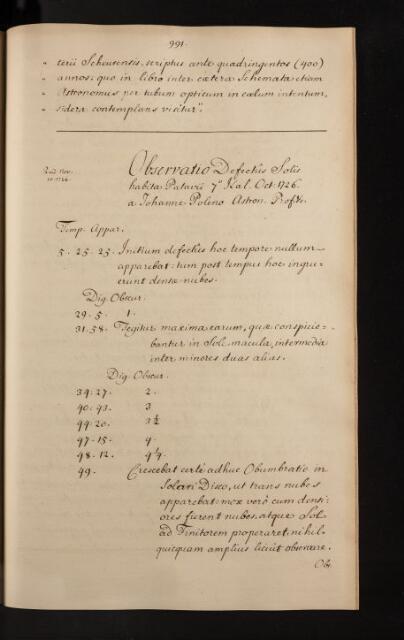 991.
" terii Scheurensis, scriptus ante quadringentos (400)
" annos: quo in libro inter cætera Schemata etiam
" Astronomus per tubum opticum in cœlum intentum,
" sidera contemplans visitur".
Observatio Defectûs Solis
habita Patavii 7° Kal. Oct. 1726.
a Johanne Poleno Astron. Profre.
Read Nov.
10. 1726.
Temp. Appar.
5. 25. 25. Initium defectûs hoc tempore nullum
apparebat: tum post tempus hoc ingru-
erunt densæ nubes.
Dig. Obscur.
29. 5. 1.
31. 58. Tegitur maxima earum, quæ conspicie-
bantur in Sole, macula, intermedia
inter minores duas alias.
Dig. Obscur.
34. 27. 2.
40. 43. 3
44. 20. 3½
47. 15. 4.
48. 12. 4¼.
49. Crescebat certè adhuc Obumbratio in
Solari Disco, ut trans nubes
apparebat: mox verò cum densi-
ores fierent nubes, atque Sol
ad Finitorem properaret, nihil
quicquam amplius licuit observare.
Ob-